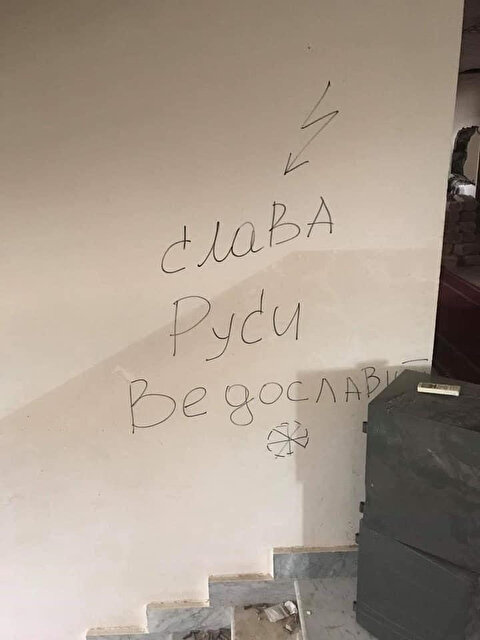 Слава
Руси
Ведославной